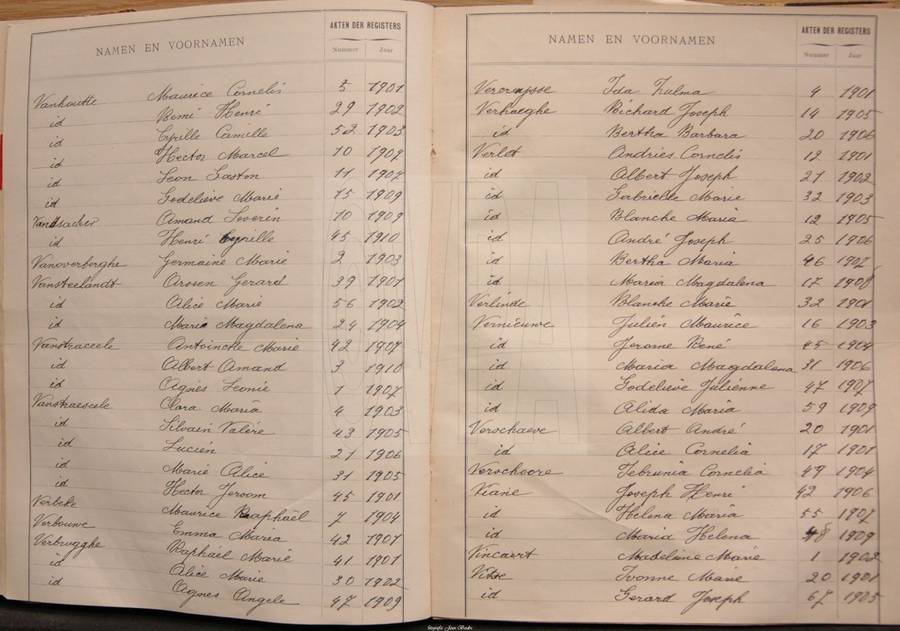 NAMEN EN VOORNAMEN AKTEN DER REGISTERS
Nummer Jaar
Vanhoutte Maurice Cornelis 5 1901
id Remi Henri 29 1902
id Cyrille Camille 52 1903
id Hector Marcel 10 1907
id Leon Gaston 11 1907
id Godelieve Marie 15 1909
Amand Severin 10 1909
id Henri Cyrille 45 1910
Vanoverberghe Germaine Marie 2 1903
Vansteelandt Arsen Gerard 39 1901
id Alice Marie 56 1902
id Marie Magdalena 24 1904
Vanstraceele Antoinette Marie 42 1907
id Albert Amand 3 1910
id Agnes Leonie 1 1907
Vanstraeseele Clara Maria 4 1903
id Silvain Valère 43 1905
id Lucien 21 1906
id Marie Alice 31 1905
id Hector Jeroom 45 1901
Verbeke Maurice Raphaël 7 1904
Verbouwe Emma Maria 42 1907
Verbrugghe Raphaël Marie 41 1901
id Alice Marie 30 1902
id Agnes Angele 47 1909
NAMEN EN VOORNAMEN AKTEN DER REGISTERS
Nummer Jaar
Vercruysse Ida Zulma 4 1901
Verhaeghe Richard Joseph 14 1905
id Bertha Barbara 20 1906
Verlet Andries Cornelis 12 1901
id Albert Joseph 21 1902
id Gabrielle Marie 32 1903
id Blanche Maria 12 1905
id André Joseph 25 1906
id Bertha Maria 46 1907
id Maria Magdalena 17 1908
Verlinde Blanche Marie 32 1901
Vernieuwe Julien Maurice 16 1903
id Jerome René 45 1904
id Maria Magdalena 31 1906
id Godelieve Juliénne 47 1907
id Alida Maria 59 1909
Verschaeve Albert André 20 1901
id Alice Cornelia 17 1901
Verschoore Februnia Cornelia 49 1904
Viane Joseph Henri 42 1906
id Helena Maria 55 1907
id Maria Helena 48 1909
Vincaert Madeleine Marie 1 1902
Vitse Ivonne Marie 20 1901
id Gerard Joseph 67 1905